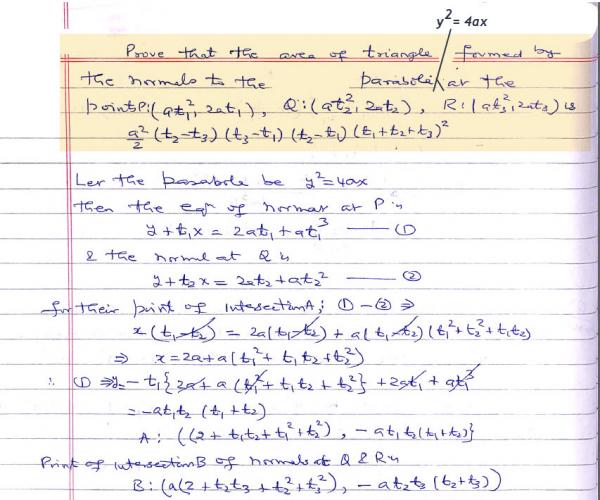 y² = 4ax
Prove that the area of triangle formed by
the normals to the parabola at the
point P:(at₁², 2at₁), Q:(at₂², 2at₂), R:(at₃², 2at₃) is
a²/2 (t₂-t₃) (t₃-t₁) (t₂-t₁) (t₁+t₂+t₃)²
Let the parabola be y²=4ax
then the eqⁿ of normal at P is
y+t₁x = 2at₁+at₁³ —— ①
& the normal at Q is
y+t₂x = 2at₂+at₂² —— ②
for their point of intersection A; ①-② ⇒
x(t₁-t₂) = 2a(t₁-t₂) + a(t₁-t₂)(t₁²+t₂²+t₁t₂)
⇒ x=2a+a(t₁²+t₁t₂+t₂²)
∴ ① ⇒ y=-t₁{2a+a(t₁²+t₁t₂+t₂²} +2at₁+at₁³
=-at₁t₂ (t₁+t₂)
A: ((2+t₁t₂+t₁²+t₂²), -at₁t₂(t₁+t₂)}
Point of intersection B of normals at Q & R is
B:(a(2+t₂t₃+t₂²+t₃²), -at₂t₃ (t₂+t₃))